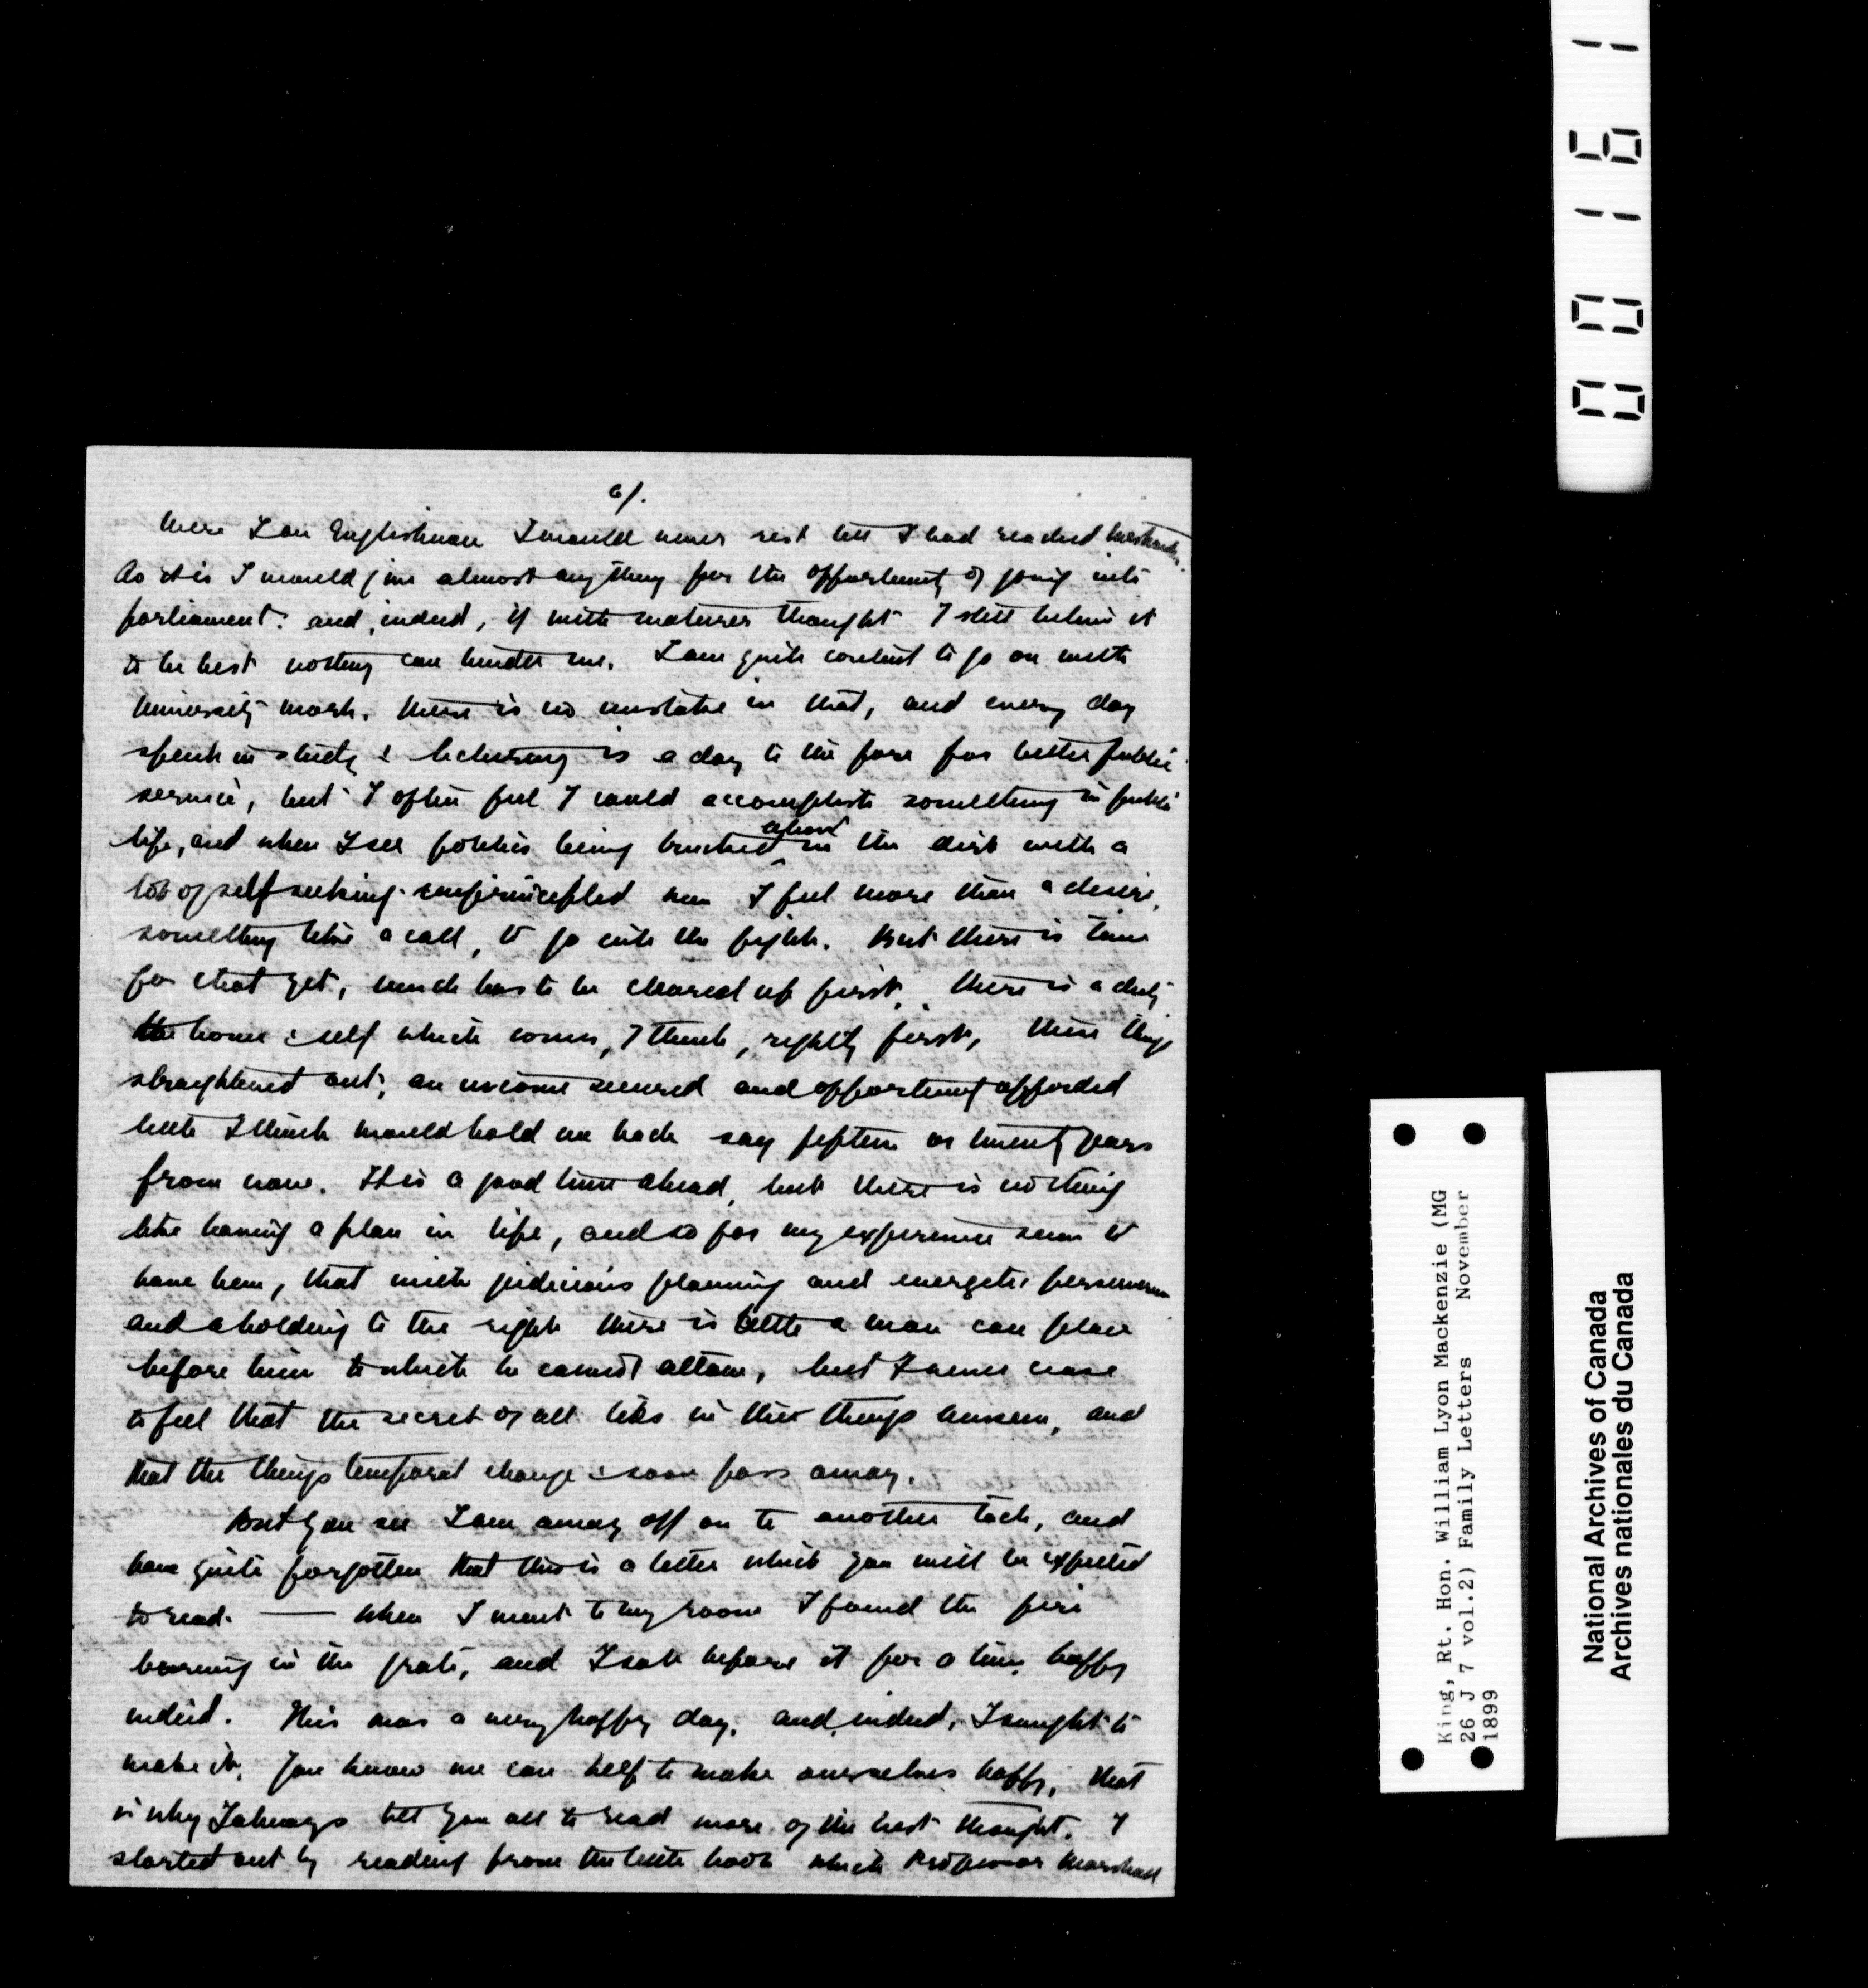 6/.
Were I an Englishman I would never rest till I had reached Westminster.
As it is I would give almost anything for the opportunity of going into
parliament. and, indeed, if with maturer thought I still believe it
to be best nothing can hinder me. I am quite content to go on with
University work. there is no mistake in that, and every day
spent in study & lecturing is a day to the fore for better public
service, but I often feel I could accomplish something in public
life, and when I see politics being brushed about in the dirt with a
lot of self seeking unprincipled men I feel more than a desire,
something like a call, to go into the fight. But there is time
for that yet, much has to be cleared up first. there is a duty
to home & self which comes, I think, rightly first, these things
straightened out, an income secured and opportunity afforded
little I think would hold me back say fifteen or twenty years
from now. It is a good time ahead, but there is nothing
like having a plan in life, and so far my experience seems to
have been, that with judicious planning and energetic perseverance
and a holding to the right there is little a man can place
before him to which he cannot attain, but I never cease
to feel that the secret of all lies in the things unseen, and
that the things temporal change & soon pass away.
But you see I am away off on to another tack, and
have quite forgotten that this is a letter which you will be expected
to read. — When I went to my room I found the fire
burning in the grate, and I sat before it for a time, happy
indeed. This was a very happy day. and, indeed, I sought to
make it. You know we can help to make ourselves happy, that
is why I always tell you all to read more of the best thought. I
started out by reading from the little book which Professor Marshall
0 0 1 6 1
King, Rt. Hon. William Lyon Mackenzie (MG
26 J 7 vol.2) Family Letters November
1899
National Archives of Canada
Archives nationales du Canada